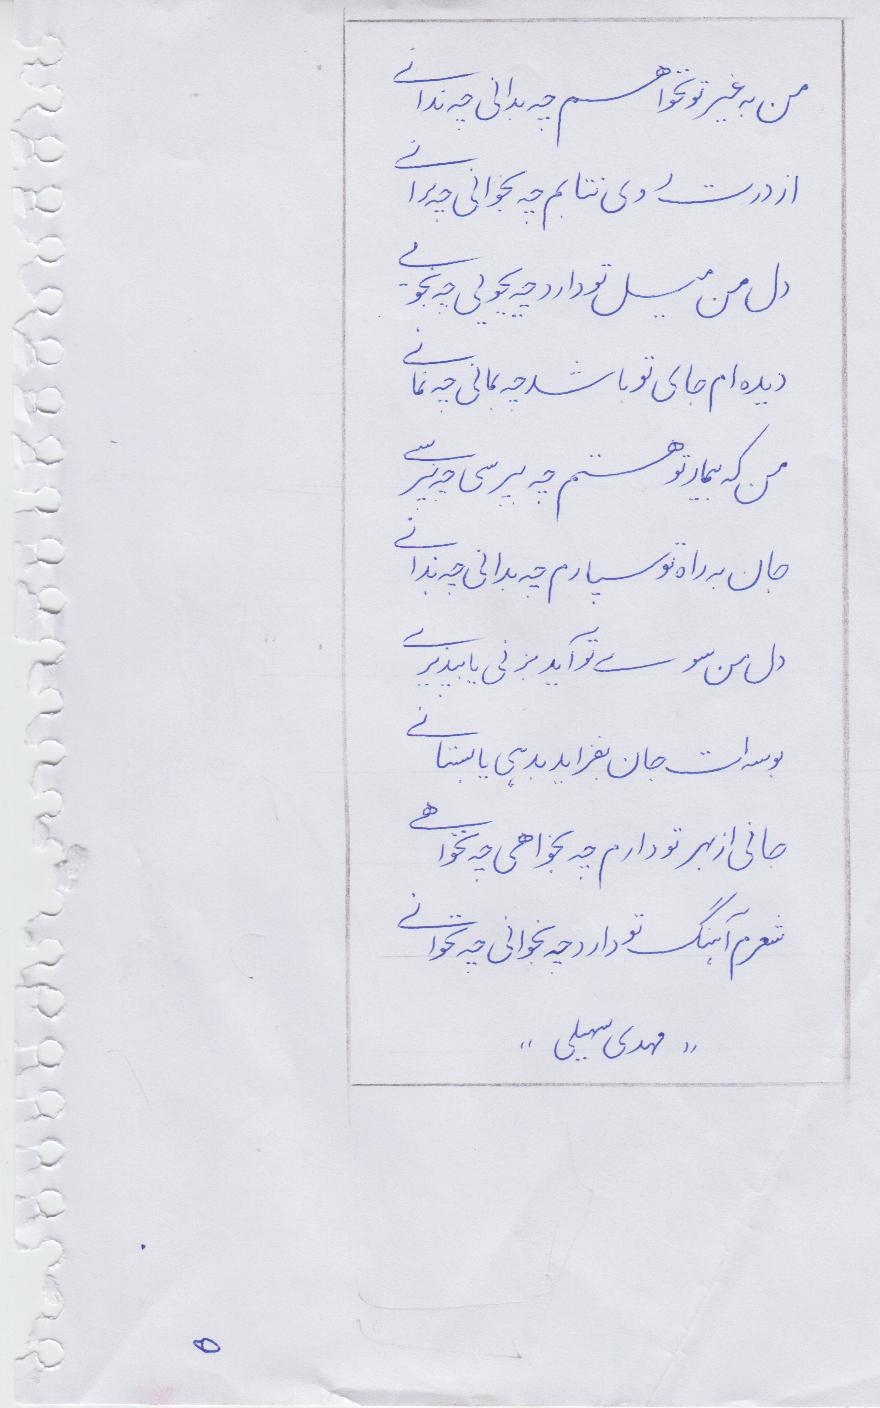 من به غیر تو نخواهم چه بدانی چه ندانی
از درت روی نتابم چه بخوانی چه برانی
دل من میل تو دارد چه بجوئی چه نجوئی
دیده ام جای تو باشد چه بمانی چه نمانی
من که بیمار تو هستم چه بپرسی چه نپرسی
جان به راه تو سپارم چه بدانی چه ندانی
دل من سوی تو آید بزنی یا بپذیری
بوسه ات جان بفزاید بدهی یا بستانی
جانی از بهر تو دارم چه بخواهی چه نخواهی
شعرم آهنگ تو دارد چه بخوانی چه نخوانی
"مهدی سهیلی"
۵